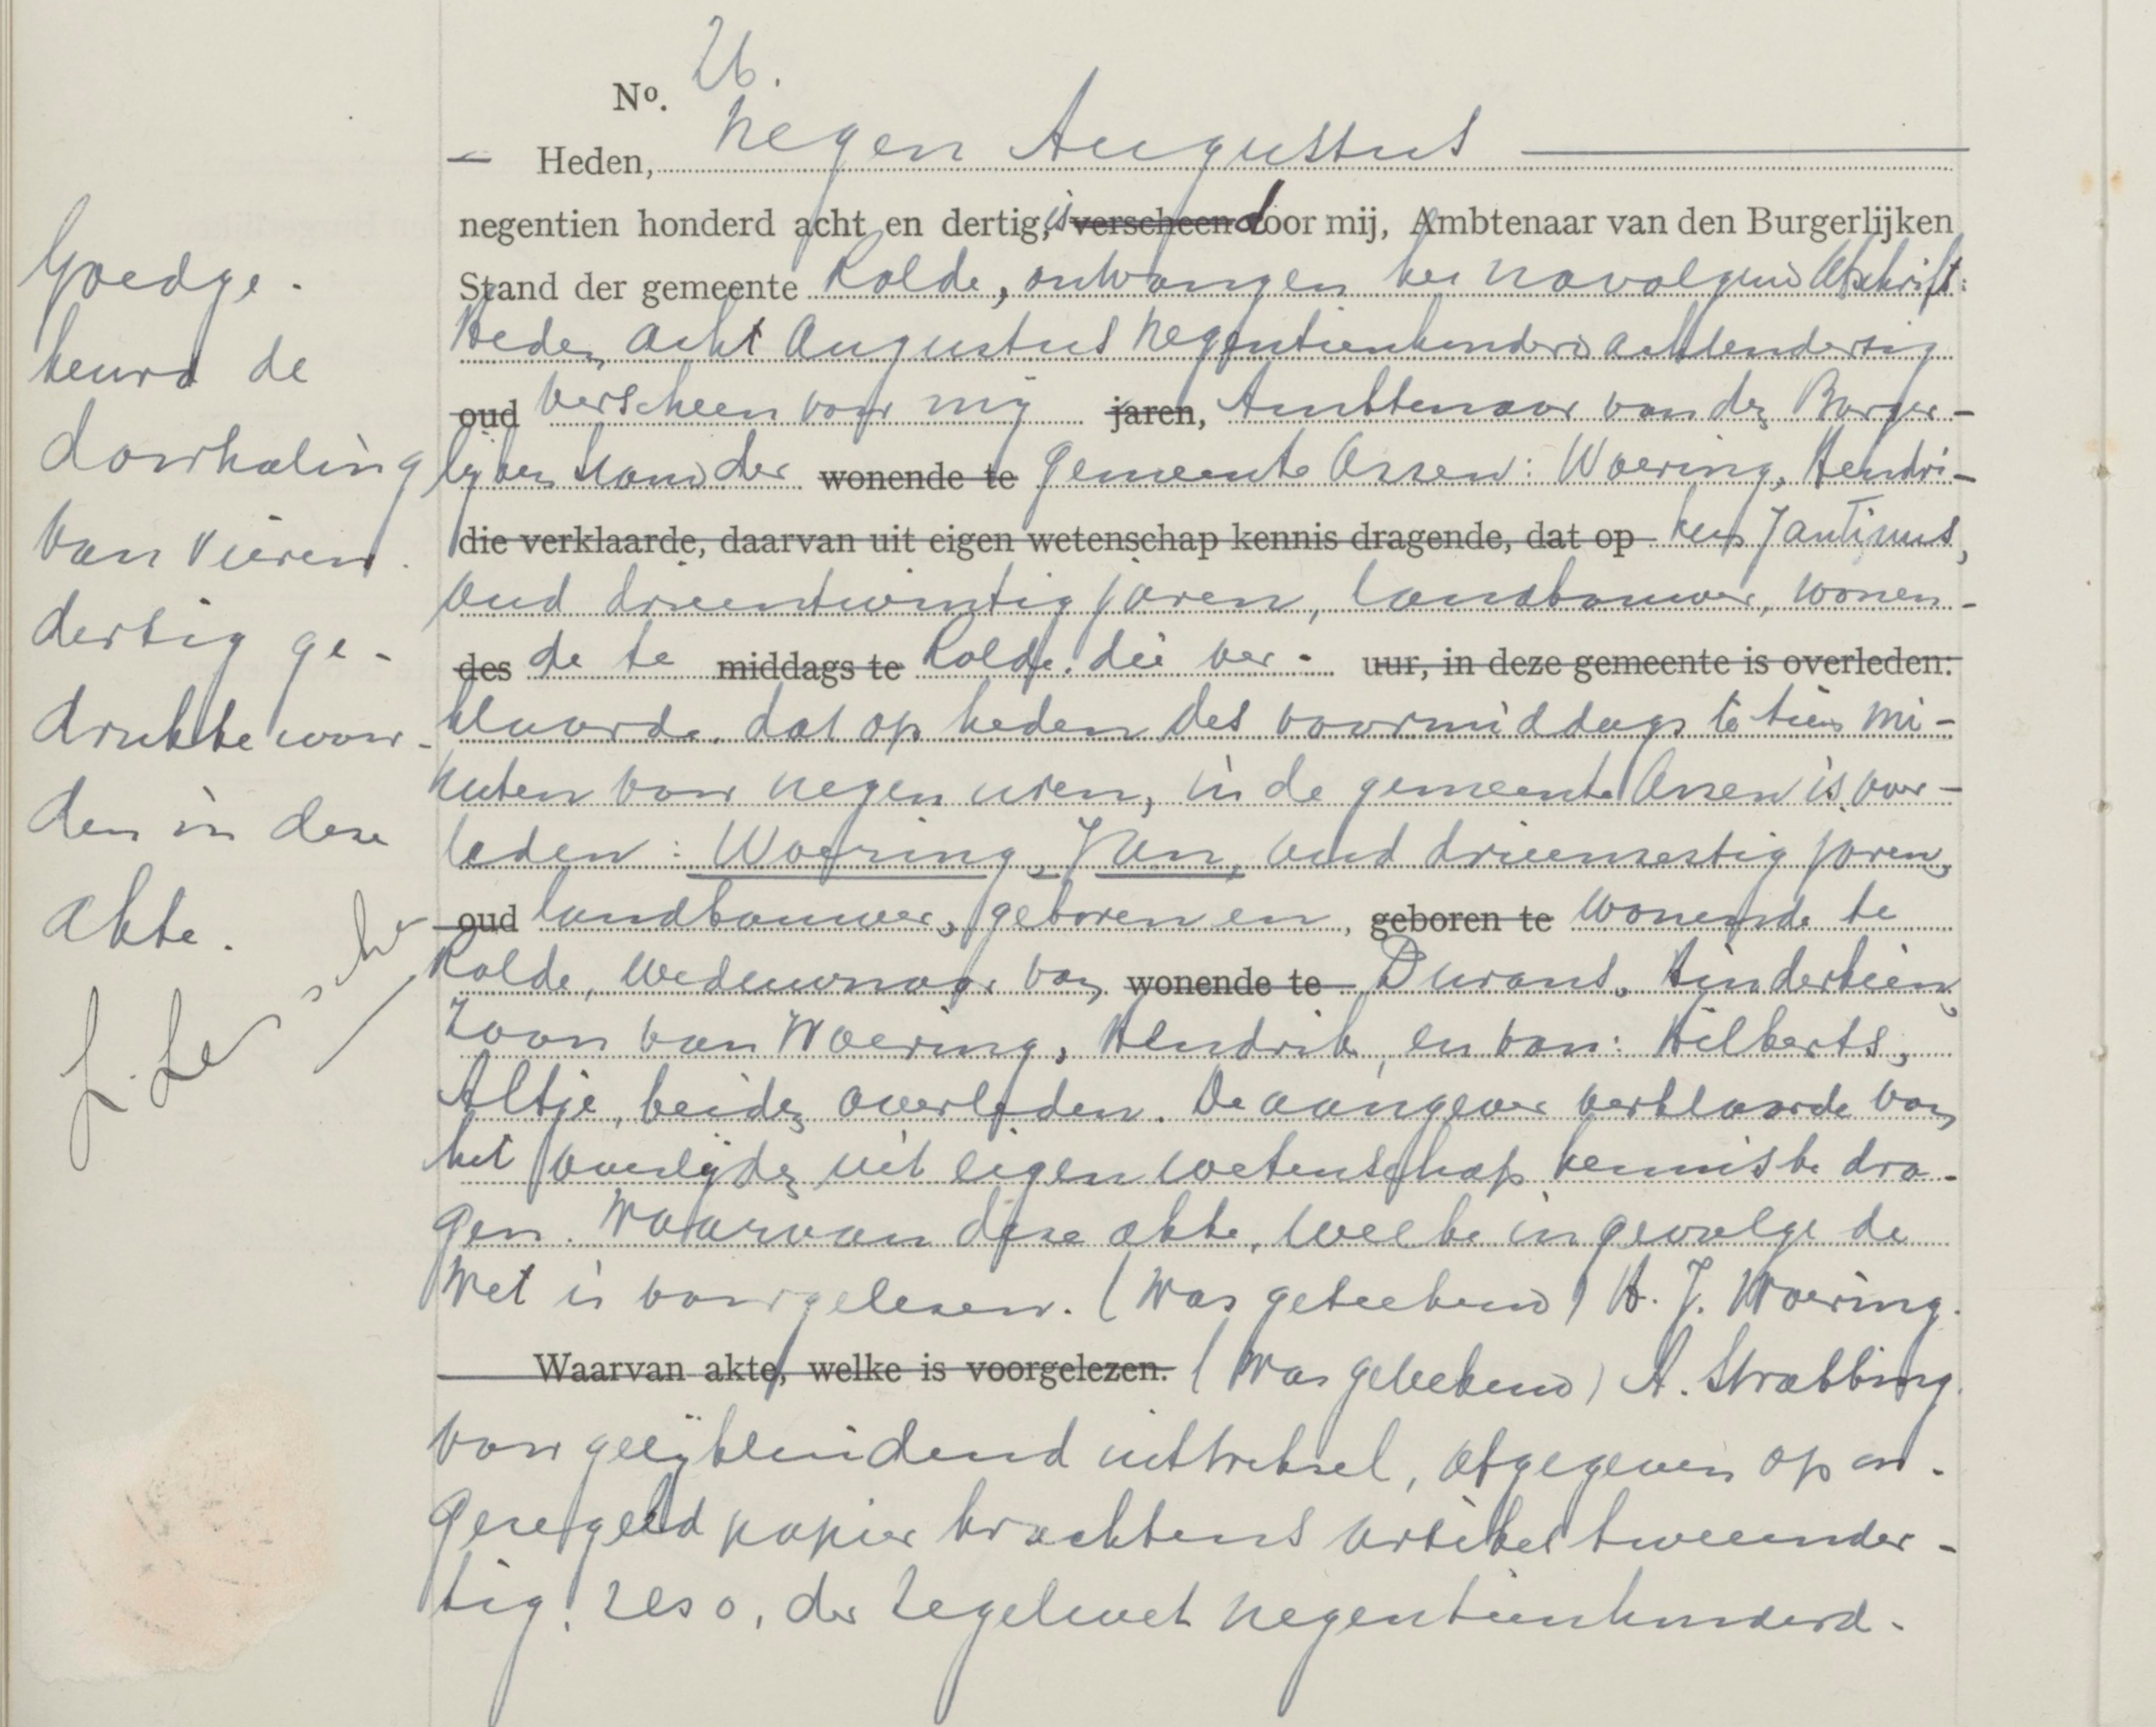 No. 26.
— Heden, negen Augustus —
negentien honderd acht en dertig, is verscheen door mij, Ambtenaar van den Burgerlijken
Stand der gemeente Rolde, ontvangen het navolgend Afschrift:
Heden acht Augustus negentienhonderd achtendertig
oud verscheen voor mij jaren, Ambtenaar van den Burger-
lijken Stand der wonende te gemeente Assen: Woering, Hendri-
die verklaarde, daarvan uit eigen wetenschap kennis dragende, dat op kus Jantinus,
oud drieentwintig jaren, landbouwer, wonen-
des de te middags te Rolde. die ver- uur, in deze gemeente is overleden:
klaarde, dat op heden des voormiddags te tien mi-
nuten voor negen uren, in de gemeente Assen is over-
leden: Woering, Jan, oud drieenzestig jaren,
oud landbouwer, geboren en, geboren te wonende te
Rolde, weduwnaar van wonende te Durans, Hindertien,
zoon van Woering, Hendrik, en van: Hilberts,
Altje, beiden overleden. De aangever verklaarde van
het overlijden uit eigen wetenschap kennis te dra-
gen. Waarvan deze akte, welke in gevolge de
Wet is voorgelezen. (was geteekend) H. J. Woering.
Waarvan akte, welke is voorgelezen. (was geteekend) A. Strabbing
voor gelijkluidend uittreksel, afgegeven op on-
gezegeld papier krachtens artikel tweeender-
tig. zes o, der Zegelwet negentienhonderd-
Goedge-
keurd de
doorhaling
van vieren
dertig ge-
drukte woor-
den in deze
akte.